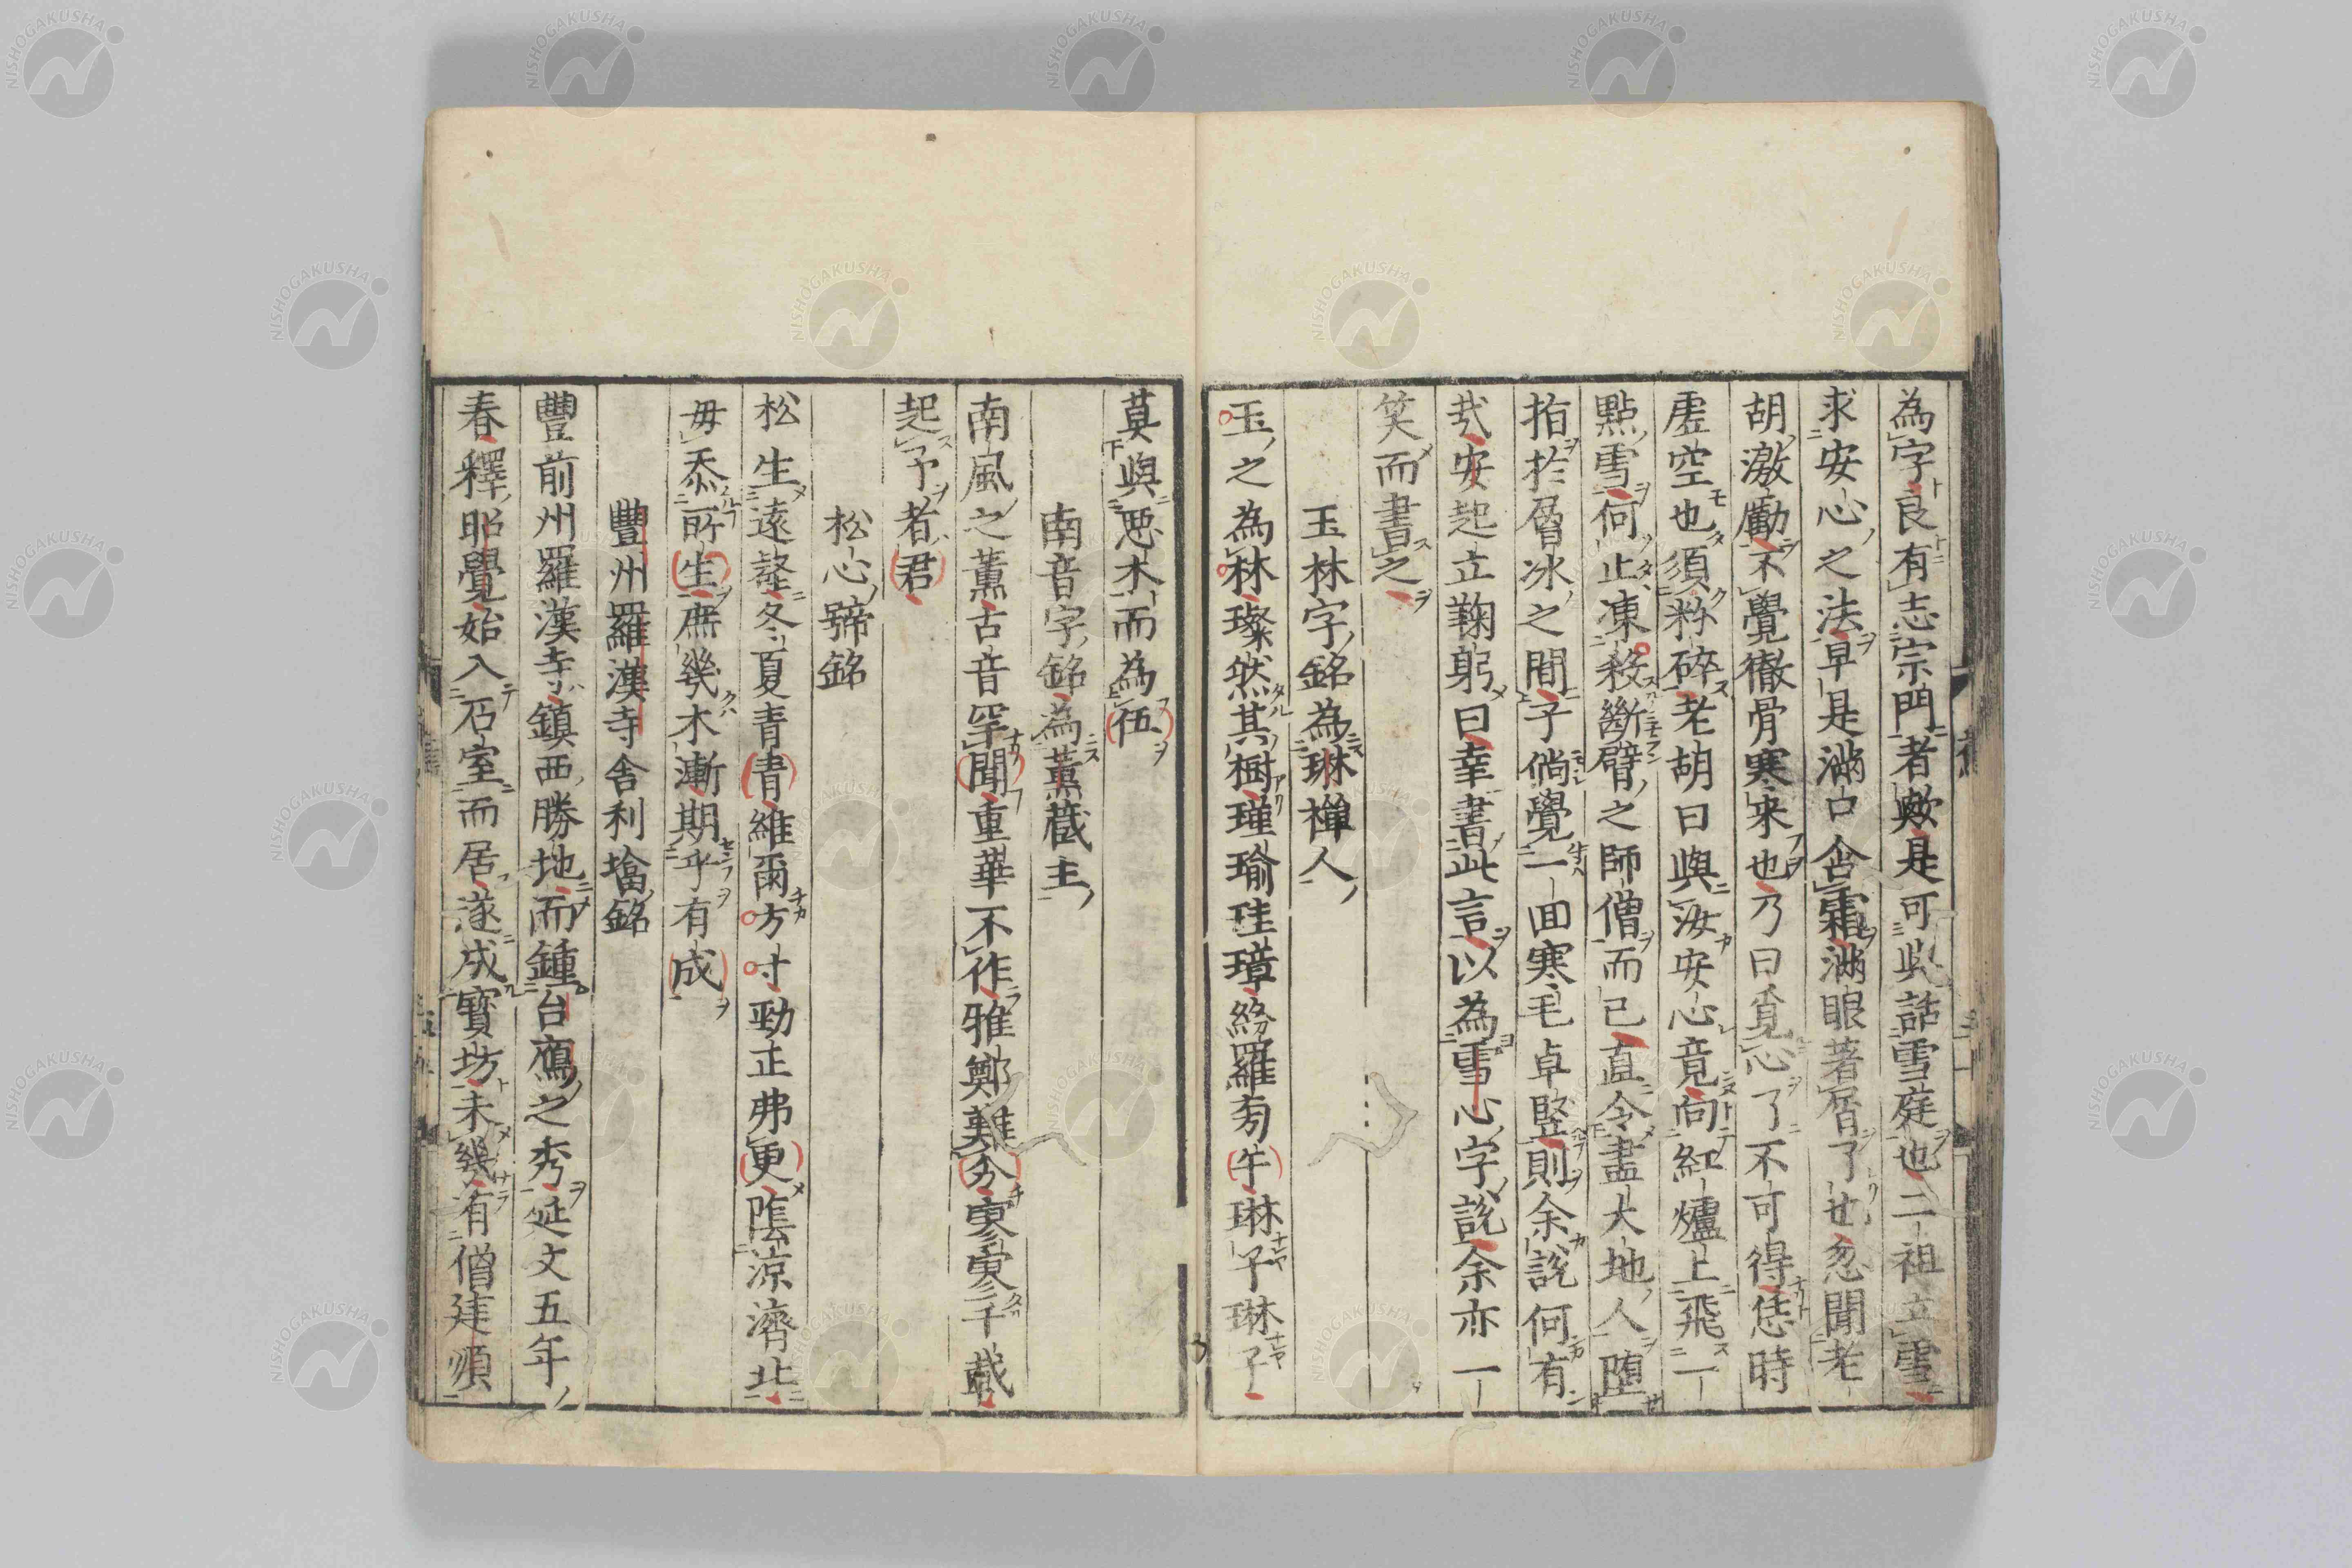 為字良有志宗門者歟是可此話雪庭也二祖立雪
求安心之法早是滿口含霜滿眼著屑了也忽聞老
胡激勵不覺徹骨寒來也乃曰覓心了不可得恁時
虛空也須粉碎老胡曰與汝安心竟向紅爐上飛一
點雪何止凍殺斷臂之師僧而已直令盡大地人墮
指於層冰之間子倘覺一回寒毛卓豎則余說何有
哉安起立鞠躬曰幸書此言以為雪心字說余亦一
笑而書之
玉林字銘為琳禪人
玉之為林璨然其樹瑾瑜珪璋紛羅旁午琳子琳子
莫與惡木而為伍
南音字銘為薰藏主
南風之薰古音罕聞重華不作雅鄭難分寥寥千載
起予者君
松心號銘
松生遠壑冬夏青青維爾方寸勁正弗更蔭涼濟北
毋忝所生庶幾木漸期乎有成
豐州羅漢寺舍利塔銘
豐前州羅漢寺鎮西勝地而鍾台鴈之秀延文五年
春釋昭覺始入石室而居遂成寶坊未幾有僧建順